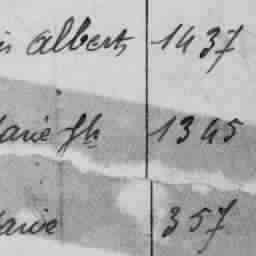 is Alberts 1437
Marie Gh 1345
Marie 357